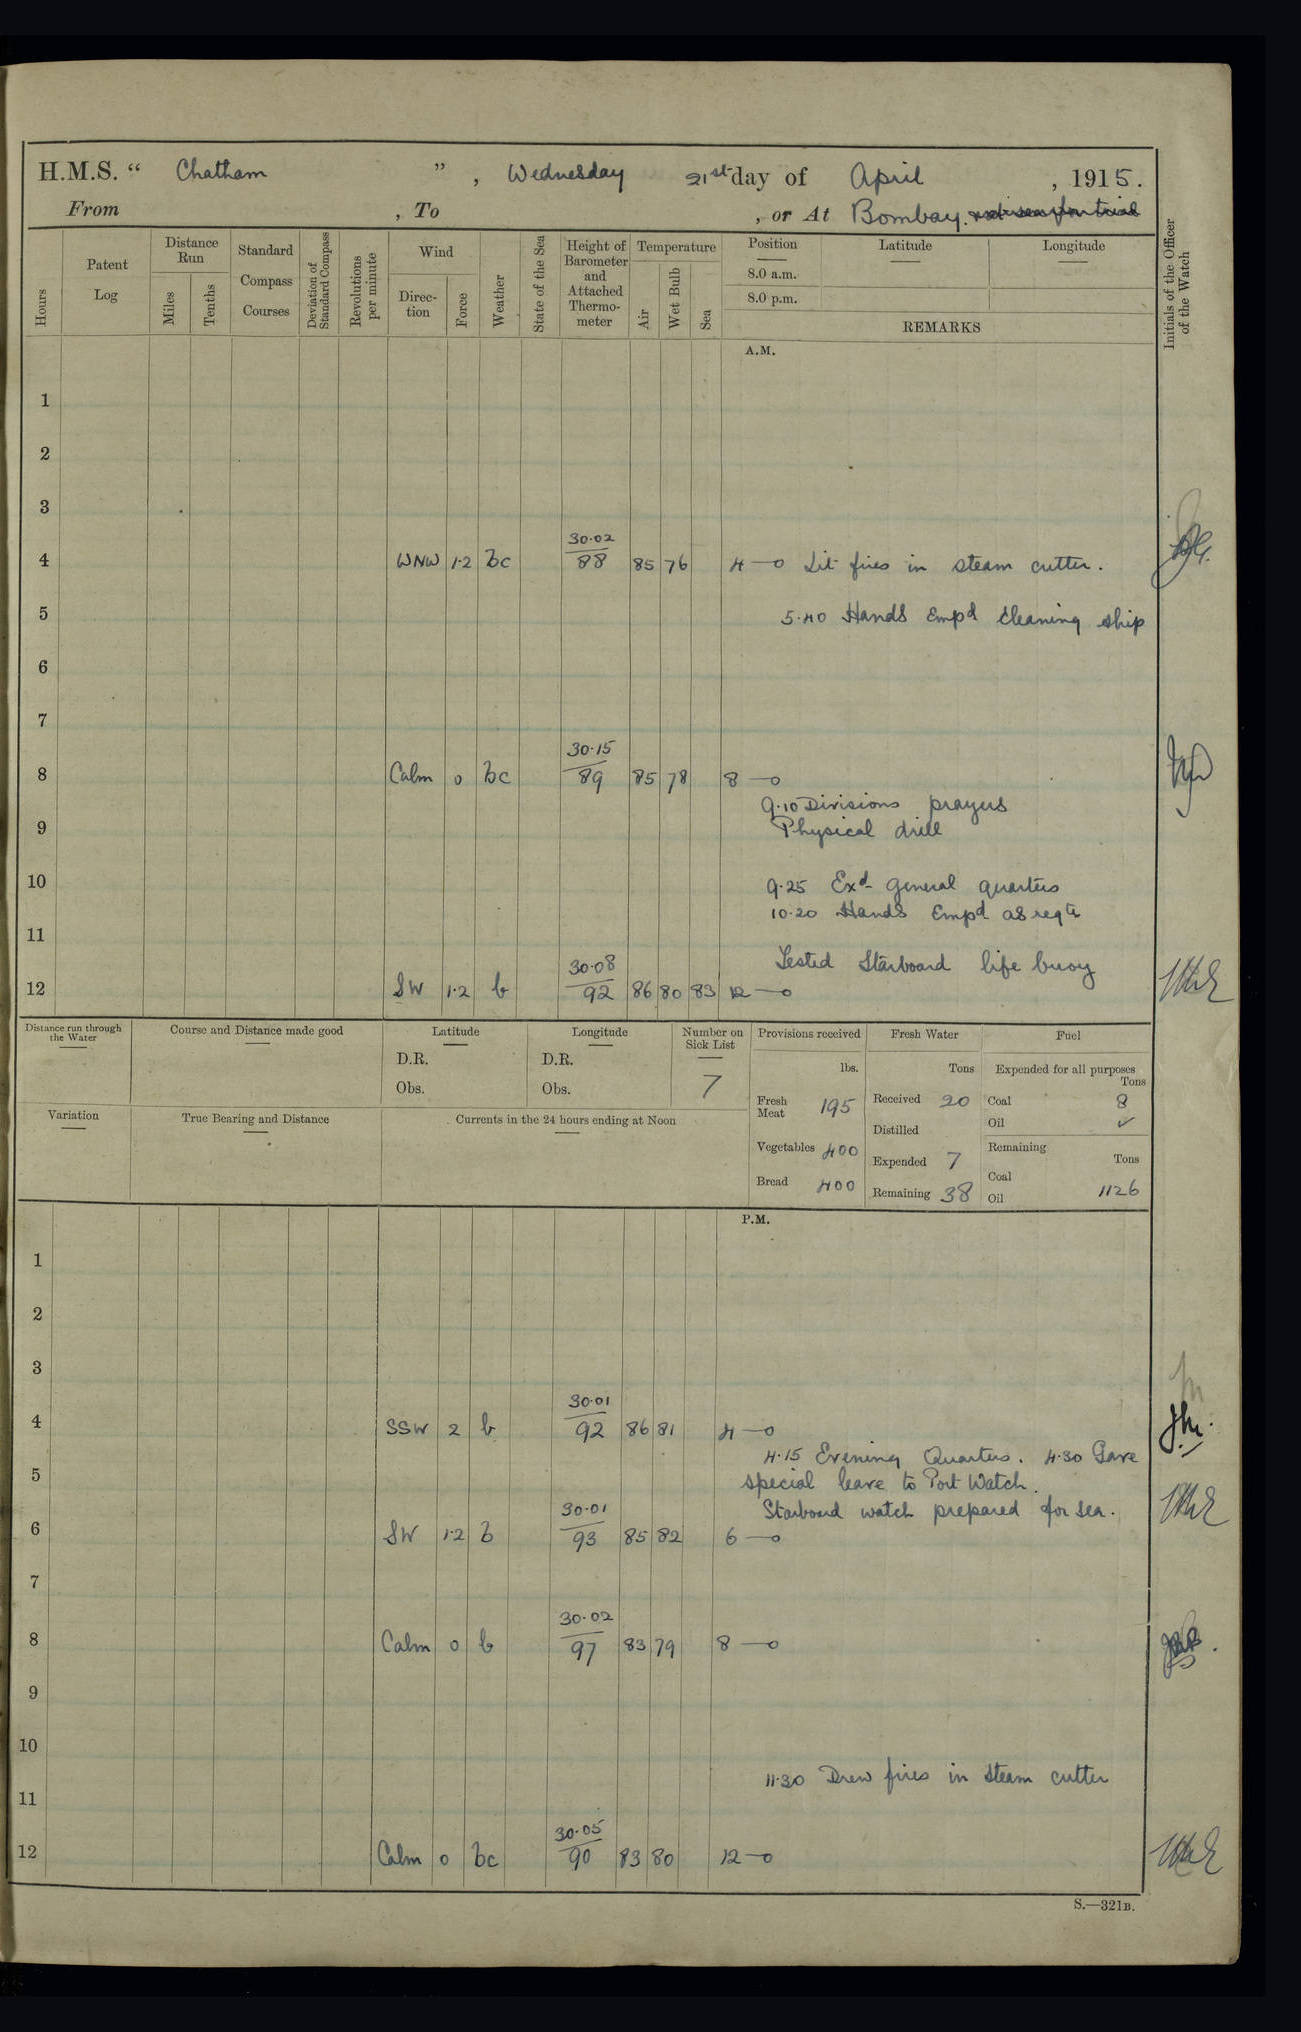 H.M.S. “ Chatham ” , Wednesday 21st day of April , 1915.
From , To , or At Bombay.
Hours
Patent Log
Distance Run
Miles
Tenths
Standard Compass Courses
Deviation of Standard Compass
Revolutions per minute
Wind
Direc-tion
Force
Weather
State of the Sea
Height of Barometer and Attached Thermo-meter
Temperature
Air
Wet Bulb
Sea
Position
8.0 a.m.
8.0 p.m.
Latitude
Longitude
REMARKS
Initials of the Officer of the Watch
A.M.
1
2
3
30·02
4 WNW 1·2 bc 88 85 76 4—0 Lit fires in steam cutter.
5 5·40 Hands Empd cleaning ship
6
7
30·15
8 Calm 0 bc 89 85 78 8—0
9·10 Divisions prayers
9 Physical drill
10 9·25 Exd general quarters
10·20 Hands Empd as reqte
11
30·08 Tested Starboard life buoy
12 SW 1·2 b 92 86 80 83 12—0
Distance run through the Water
Course and Distance made good
Latitude
D.R.
Obs.
Longitude
D.R.
Obs.
Number on Sick List
7
Variation
True Bearing and Distance
Currents in the 24 hours ending at Noon
Provisions received
lbs.
Fresh Meat 195
Vegetables 400
Bread 400
Fresh Water
Tons
Received 20
Distilled
Expended 7
Remaining 38
Fuel
Expended for all purposes
Tons
Coal 8
Oil ✓
Remaining
Tons
Coal
Oil 1126
P.M.
1
2
3
30·01
4 SSW 2 b 92 86 81 4—0
4·15 Evening Quarters. 4·30 Gave
5 special leave to Port Watch.
30·01 Starboard watch prepared for sea.
6 SW 1·2 b 93 85 82 6—0
7
30·02
8 Calm 0 b 97 83 79 8—0
9
10
11·30 Drew fires in steam cutter
11
30·05
12 Calm 0 bc 90 83 80 12—0
S.—321B.